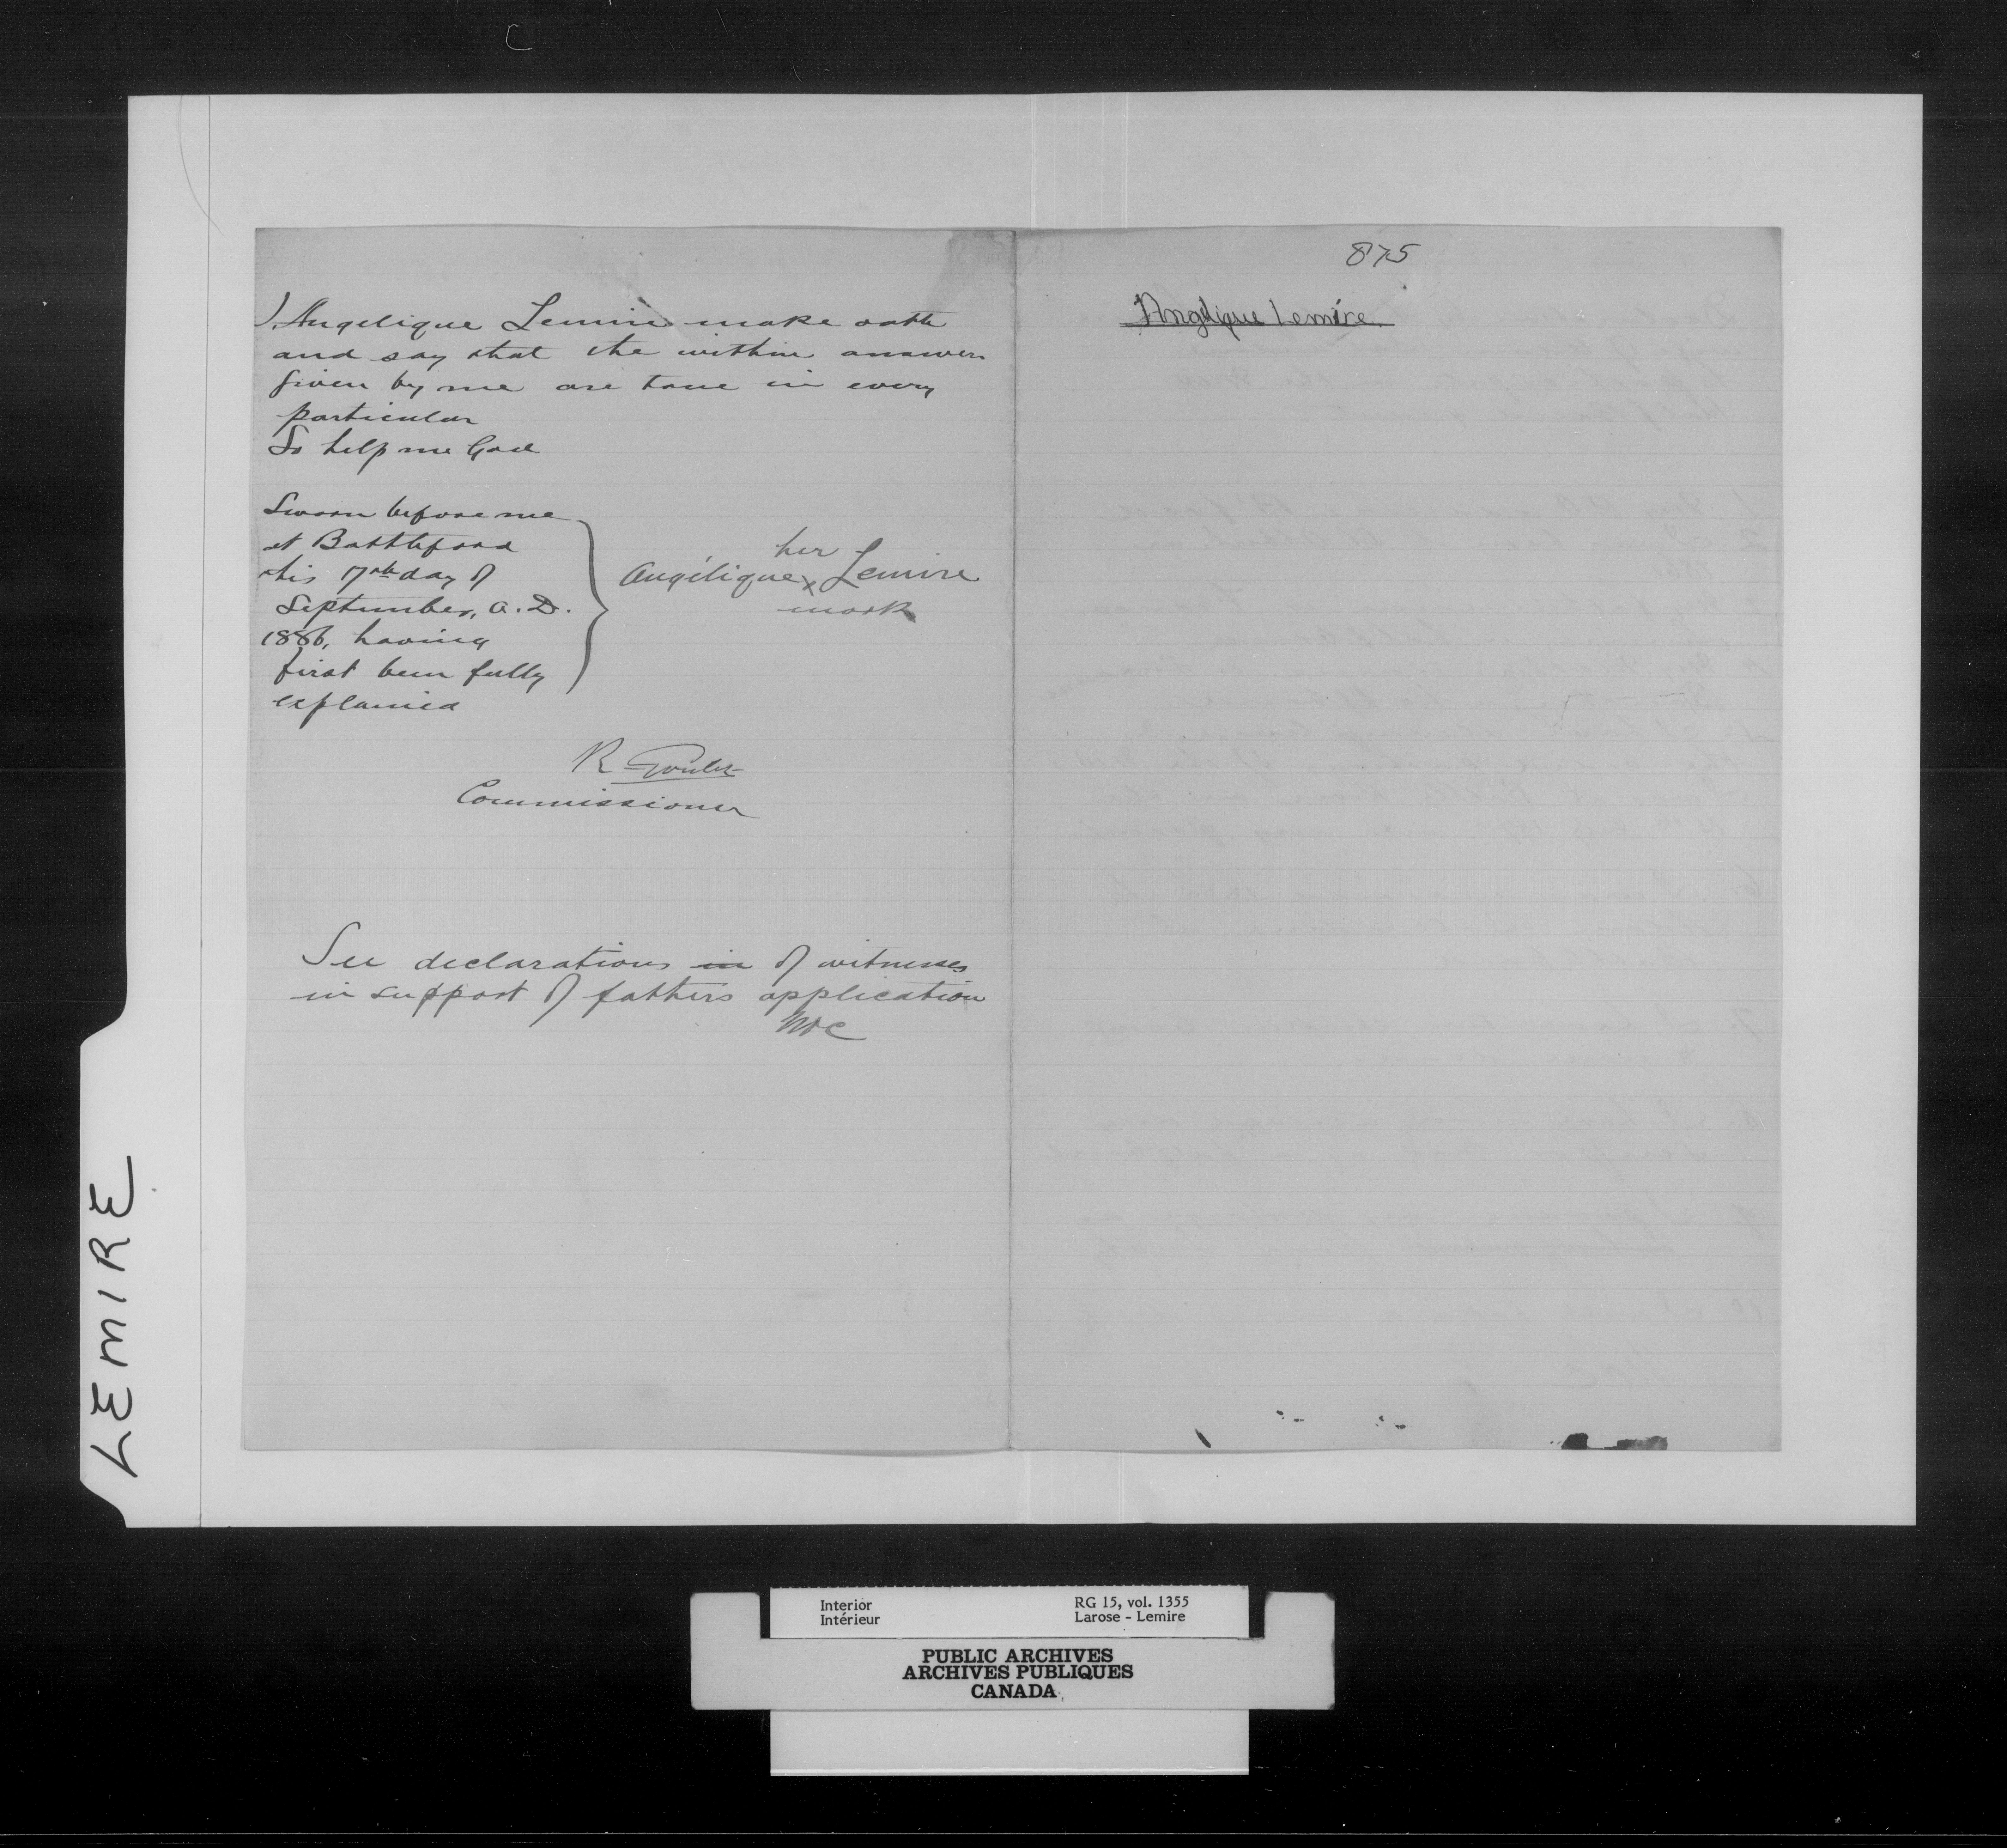 I, Angelique Lemire make oath
and say that the within answers
given by me are true in every
particular
So help me God
Sworn before me
at Battleford
this 17th day of
September, A.D.
1886, having
first been fully
explained
her
Angélique x Lemire
mark
R Goulet
Commissioner
See declarations in of witnesses
in support of fathers application
875
Angelique Lemire
LEMIRE
Interior
Intérieur
RG 15, vol. 1355
Larose - Lemire
PUBLIC ARCHIVES
ARCHIVES PUBLIQUES
CANADA